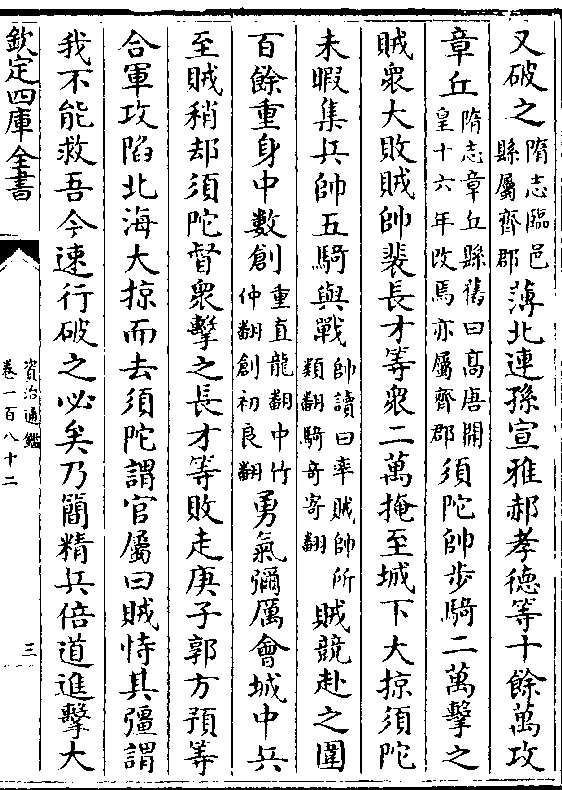 又破之隋志臨邑縣屬齊郡薄北連孫宣雅郝孝德等十餘萬攻
章丘隋志章丘縣舊曰高唐開皇十六年改焉亦屬齊郡須陀帥步騎二萬擊之
賊衆大敗賊帥裴長才等衆二萬掩至城下大掠須陀
未暇集兵帥五騎與戰帥讀曰率賊帥所類翻騎奇寄翻賊競赴之圍
百餘重身中數創重直龍翻中竹仲翻創初良翻勇氣彌厲會城中兵
至賊稍却須陀督衆擊之長才等敗走庚子郭方預等
合軍攻陷北海大掠而去須陀謂官屬曰賊恃其彊謂
我不能救吾今速行破之必矣乃簡精兵倍道進擊大
欽定四庫全書
資治通鑑
卷一百八十二
三